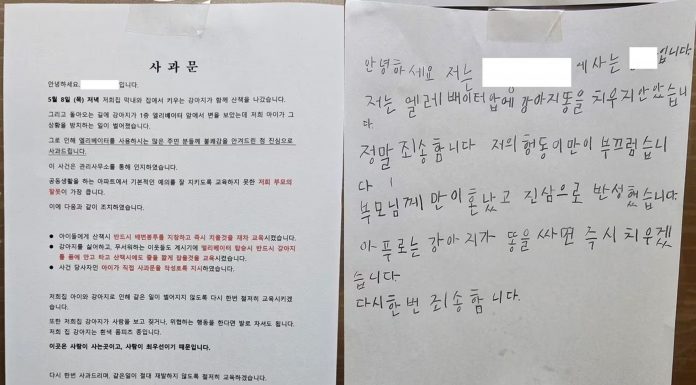 사 과 문
안녕하세요. 입니다.
5월 8일 (목) 저녁 저희집 막내와 집에서 키우는 강아지가 함께 산책을 나갔습니다.
그리고 돌아오는 길에 강아지가 1층 엘리베이터 앞에서 변을 보았는데 저희 아이가 그
상황을 방치하는 일이 벌어졌습니다.
그로 인해 엘리베이터를 사용하시는 많은 주민 분들께 불쾌감을 안겨드린 점 진심으로
사과드립니다.
이 사건은 관리사무소를 통해 인지하였습니다.
공동생활을 하는 아파트에서 기본적인 예의를 잘 지키도록 교육하지 못한 저희 부모의
잘못이 가장 큽니다.
이에 다음과 같이 조치하였습니다.
● 아이들에게 산책시 반드시 배변봉투를 지참하고 즉시 치울것을 재차 교육시켰습니다.
● 강아지를 싫어하고, 무서워하는 이웃들도 계시기에 엘리베이터 탑승시 반드시 강아지
를 품에 안고 타고 산책시에도 줄을 짧게 잡을것을 교육시켰습니다.
● 사건 당사자인 아이가 직접 사과문을 작성토록 지시하였습니다.
저희집 아이와 강아지로 인해 같은 일이 벌어지지 않도록 다시 한번 철저히 교육시키겠
습니다.
또한 저희집 강아지가 사람을 보고 짖거나, 위협하는 행동을 한다면 발로 차셔도 됩니다.
저희 집 강아지는 흰색 폼피츠 종입니다.
이곳은 사람이 사는곳이고, 사람이 최우선이기 때문입니다.
다시 한번 사과드리며, 같은일이 절대 재발하지 않도록 철저히 교육하겠습니다.
안녕하세요 저는 에사는 입니다.
저는 엘레베이터앞에 강아지똥을 치우지안았습니
다
정말 죄송합니다 저의 행동이만이 부끄럽습니
다
부모님께 만이혼났고 진심으로 반성했습니다.
아푸로는 강아지가 똥을 싸면 즉시 치우겠
습니다
다시한번 죄송합니다.